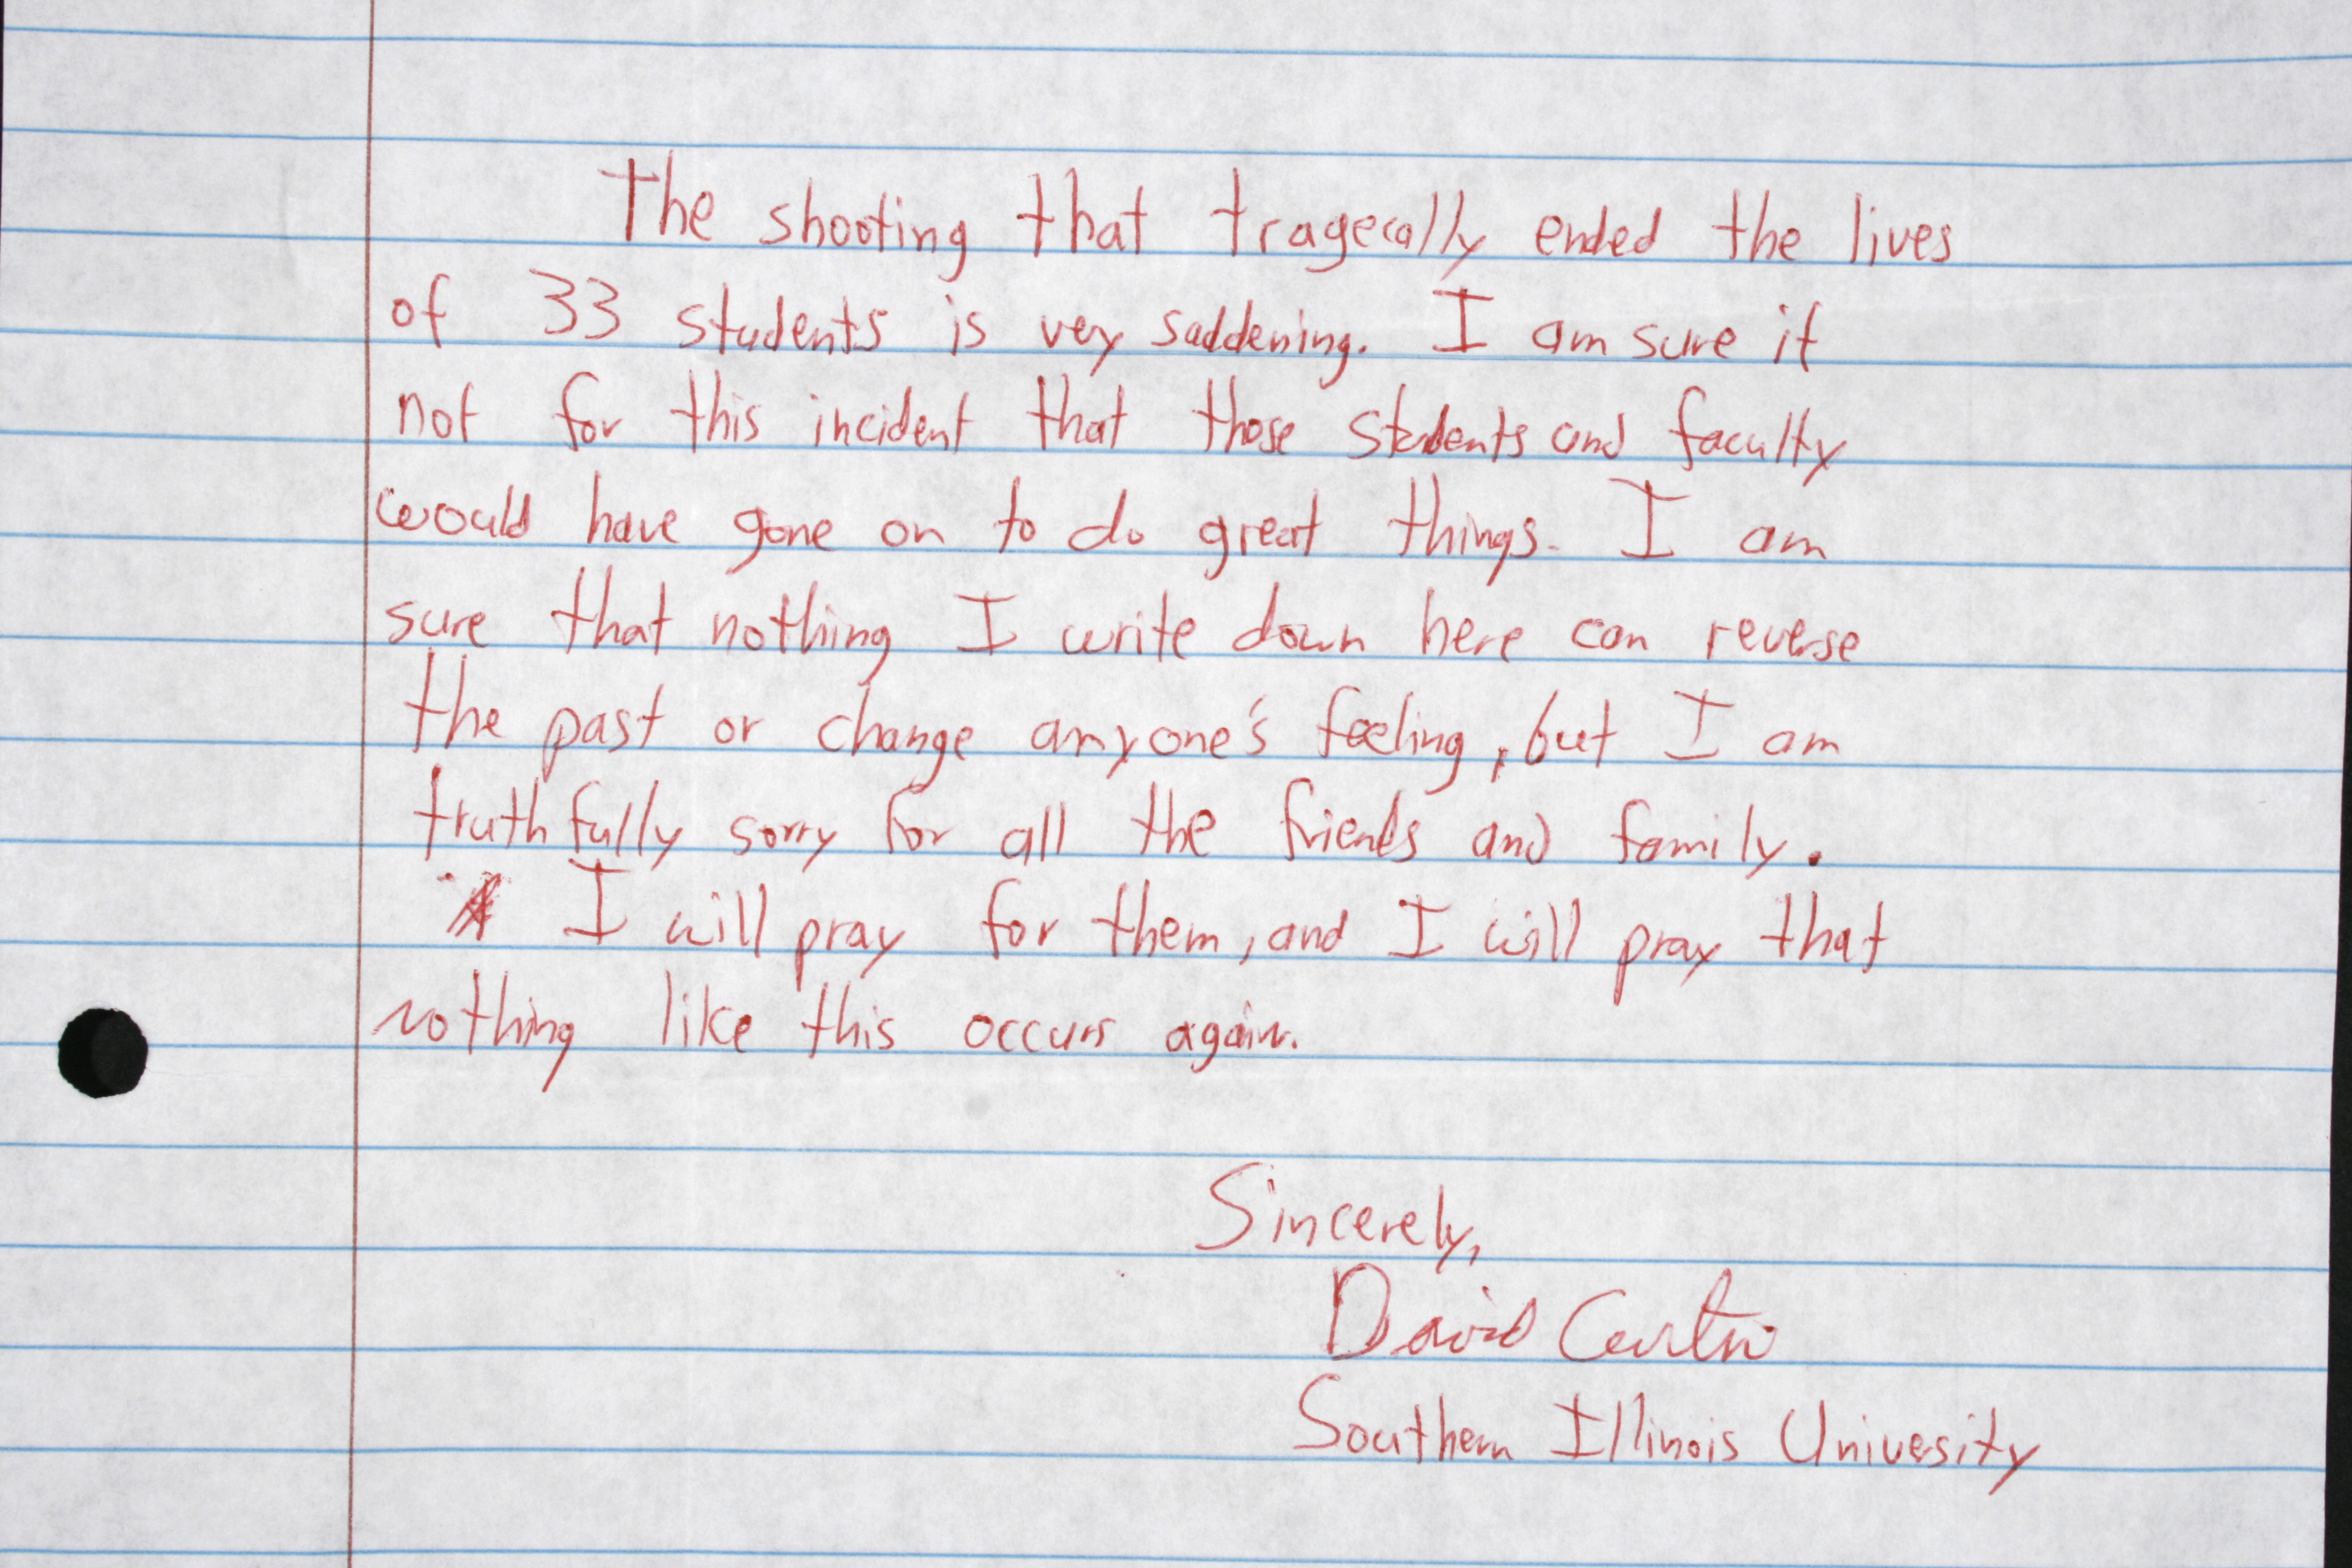 The shooting that tragecally ended the lives
of 33 students is very saddening. I am sure if
not for this incident that those students and faculty
would have gone on to do great things. I am
sure that nothing I write down here can reverse
the past or change anyone's feeling, but I am
truthfully sorry for all the friends and family.
I will pray for them, and I will pray that
nothing like this occurs again.
Sincerely,
David
Southern Illinois University